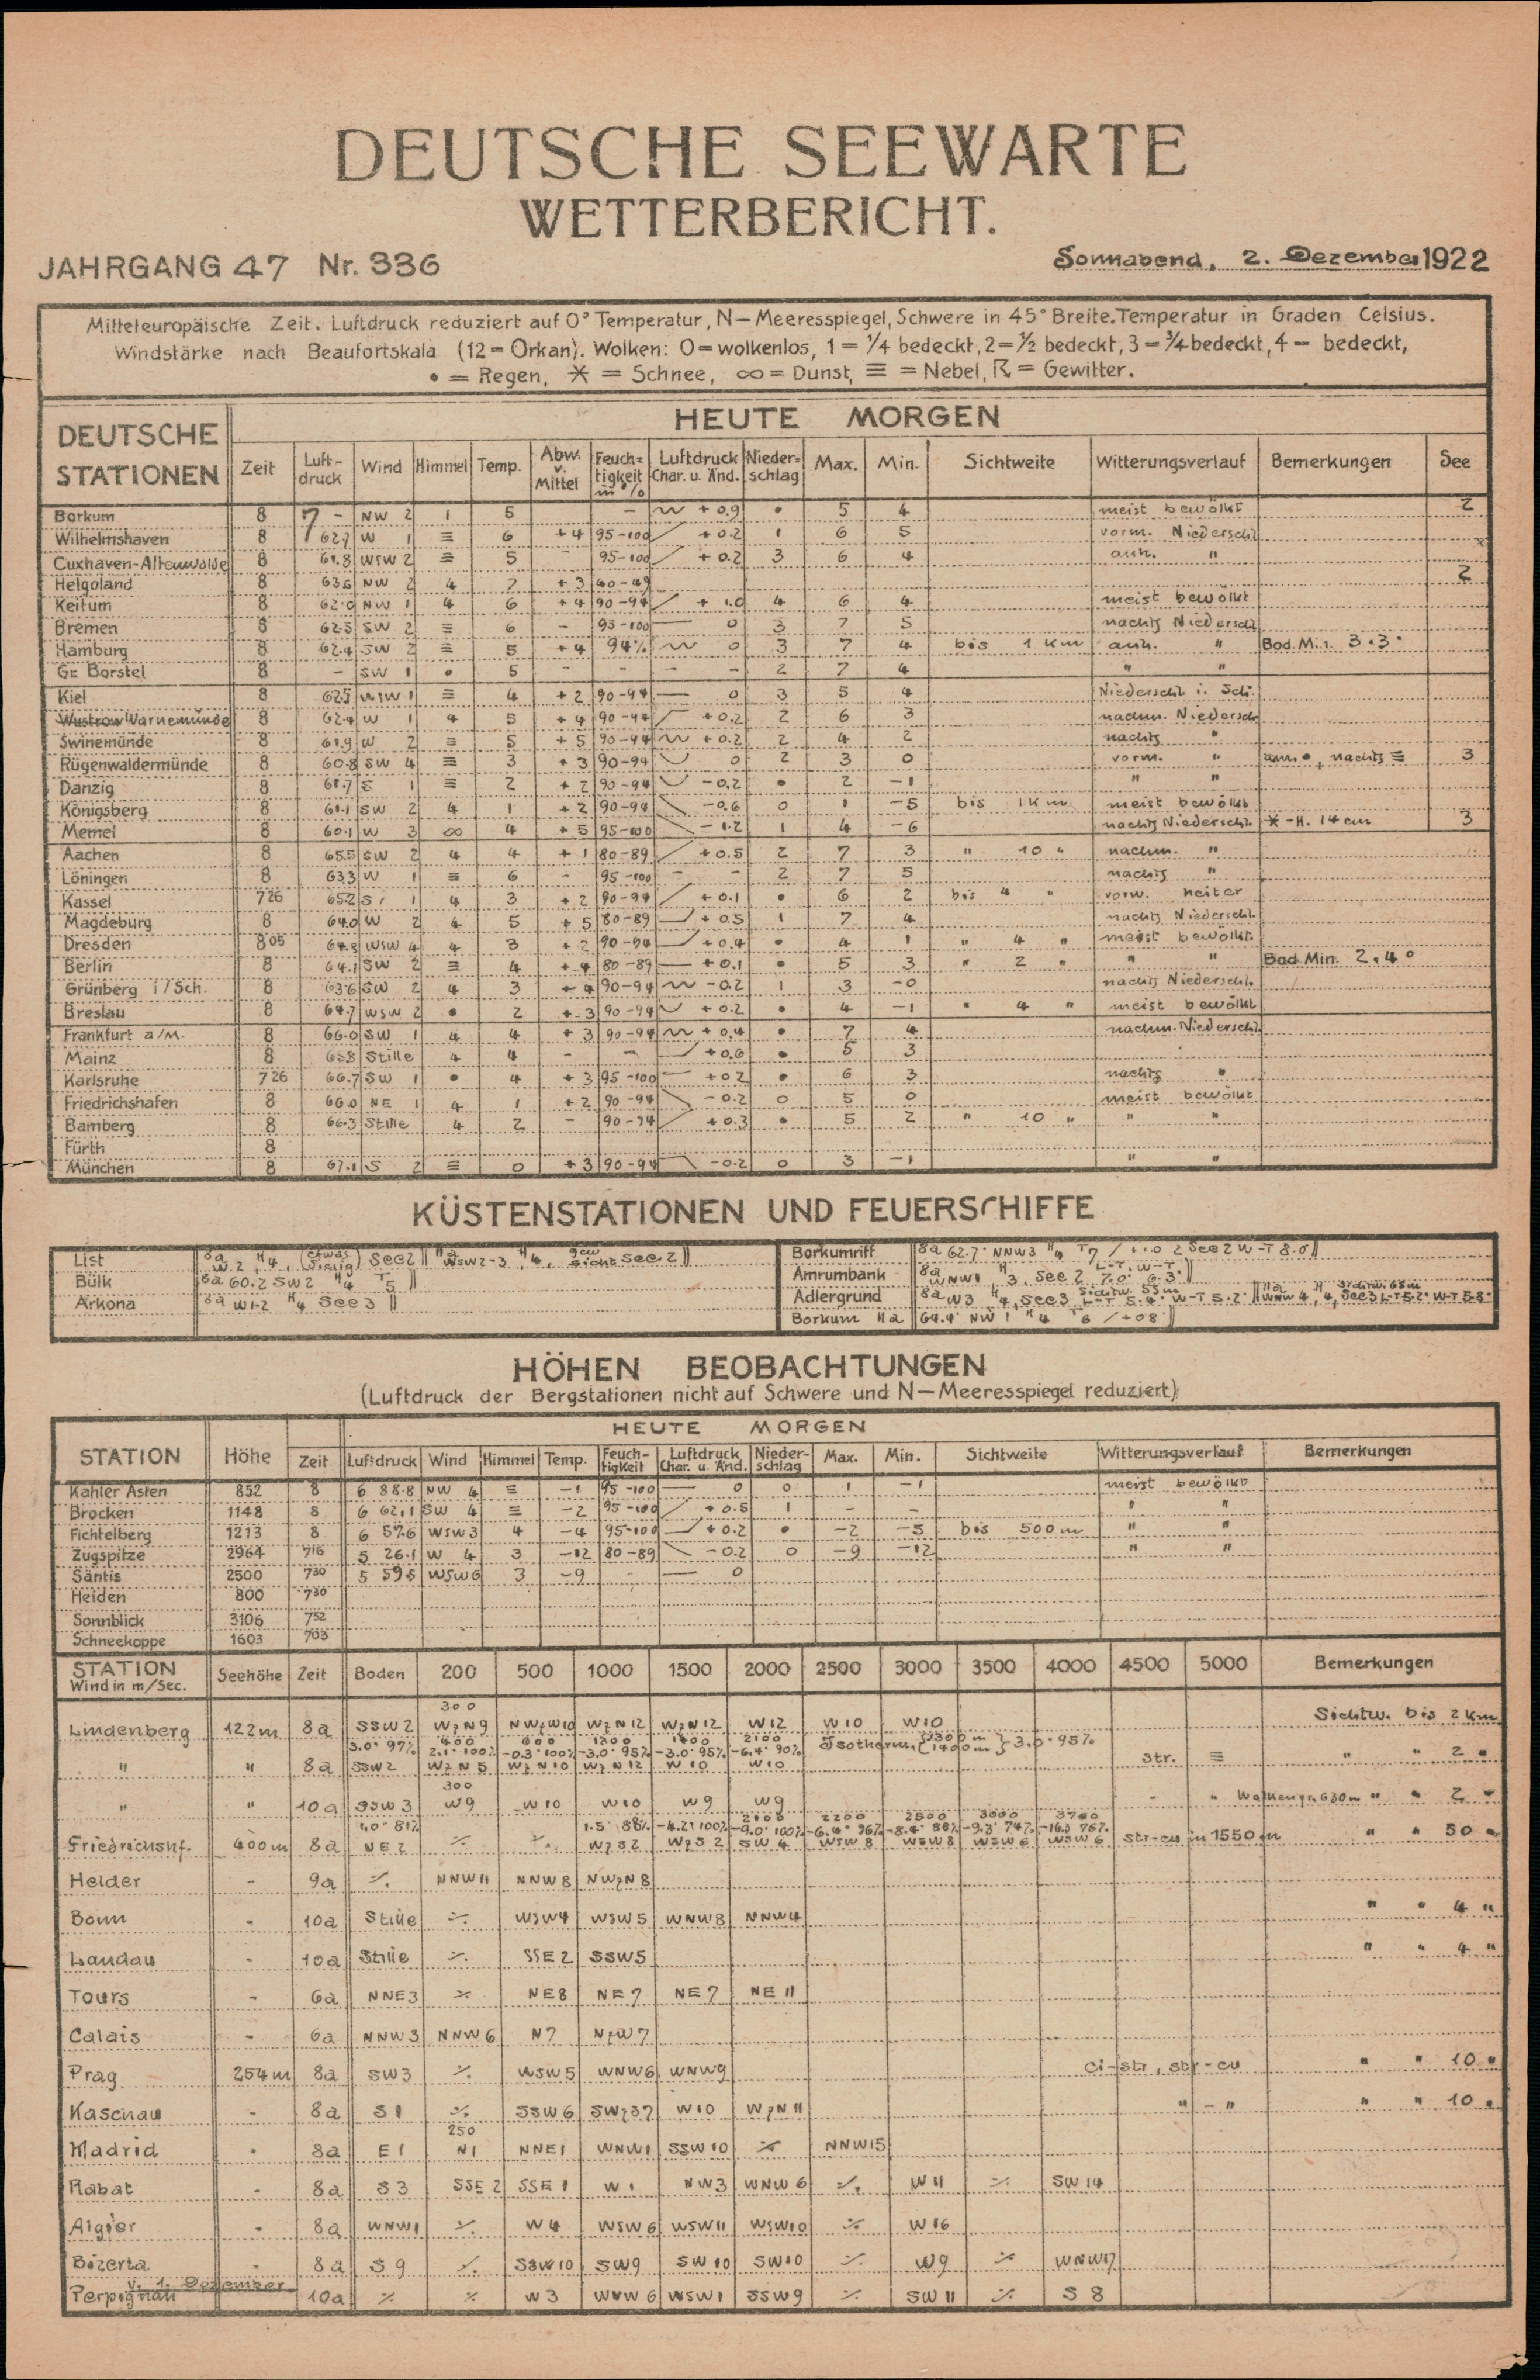 DEUTSCHE SEEWARTE
WETTERBERICHT.
JAHRGANG 47 Nr. 336 Sonnabend, 2. Dezember 1922
Mitteleuropäische Zeit. Luftdruck reduziert auf 0° Temperatur, N—Meeresspiegel, Schwere in 45° Breite. Temperatur in Graden Celsius.
Windstärke nach Beaufortskala (12 = Orkan). Wolken: 0 = wolkenlos, 1 = 1/4 bedeckt, 2 = 1/2 bedeckt, 3 = 3/4 bedeckt, 4 = bedeckt,
• = Regen, ✳ = Schnee, ∞ = Dunst, ≡ = Nebel, R = Gewitter.
DEUTSCHE STATIONEN
HEUTE MORGEN
Zeit Luft-druck Wind Himmel Temp. Abw. v. Mittel Feuch-tigkeit in % Luftdruck Char. u. Änd. Nieder-schlag Max. Min. Sichtweite Witterungsverlauf Bemerkungen See
Borkum 8 7 – NW 2 1 5 – +0.9 • 5 4 meist bewölkt 2
Wilhelmshaven 8 62.7 W 1 ≡ 6 +4 95-100 +0.2 1 6 5 vorm. Niederschl.
Cuxhaven-Altenwalde 8 61.8 WSW 2 ≡ 5 – 95-100 +0.2 3 6 4 anh. "
Helgoland 8 63.6 NW 2 4 7 +3 40-49 2
Keitum 8 62.0 NW 1 4 6 +4 90-94 +1.0 4 6 4 meist bewölkt
Bremen 8 62.5 SW 2 ≡ 6 – 95-100 0 3 7 5 nachts Niederschl.
Hamburg 8 62.4 SW 2 ≡ 5 +4 94% 0 3 7 4 bis 1 Km anh. " Bod. Min. 3.3°
Gr. Borstel 8 – SW 1 • 5 – – – – 2 7 4 " "
Kiel 8 62.5 WSW 1 ≡ 4 +2 90-94 0 3 5 4 Niederschl. i. Sch.
Wustrow Warnemünde 8 62.4 W 1 4 5 +4 90-94 +0.2 2 6 3 nachm. Niedersch.
Swinemünde 8 61.9 W 2 ≡ 5 +5 90-94 +0.2 2 4 2 nachts "
Rügenwaldermünde 8 60.8 SW 4 ≡ 3 +3 90-94 0 2 3 0 vorm. " am. •, nachts ≡ 3
Danzig 8 61.7 S 1 ≡ 2 +2 90-94 -0.2 • 2 -1 " "
Königsberg 8 61.1 SW 2 4 1 +2 90-94 -0.6 0 1 -5 bis 1 Km meist bewölkt
Memel 8 60.1 W 3 ∞ 4 +5 95-100 -1.2 1 4 -6 nachts Niederschl. ✳-H. 14 cm 3
Aachen 8 65.5 SW 2 4 4 +1 80-89 +0.5 2 7 3 " 10 " nachm. "
Löningen 8 63.3 W 1 ≡ 6 – 95-100 – – 2 7 5 nachts "
Kassel 7 26 65.2 S 1 4 3 +2 90-94 +0.1 • 6 2 bis 4 " vorw. heiter
Magdeburg 8 64.0 W 2 4 5 +5 80-89 +0.5 1 7 4 nachts Niederschl.
Dresden 8 05 WSW 4 4 3 +2 90-94 +0.4 • 4 1 " 4 " meist bewölkt.
Berlin 8 64.1 SW 2 ≡ 4 +4 80-89 +0.1 • 5 3 " 2 " " " Bod. Min. 2.4°
Grünberg i/Sch. 8 63.6 SW 2 4 3 +4 90-94 -0.2 1 3 -0 nachts Niederschl.
Breslau 8 64.7 WSW 2 • 2 +3 90-94 +0.2 • 4 -1 " 4 " meist bewölkt
Frankfurt a/M. 8 66.0 SW 1 4 4 +3 90-94 +0.4 • 7 4 nachm. Niederschl.
Mainz 8 65.8 Stille 4 4 – – +0.6 • 5 3
Karlsruhe 7 26 66.7 SW 1 • 4 +3 95-100 +0.2 • 6 3 nachts "
Friedrichshafen 8 66.0 NE 1 4 1 +2 90-94 -0.2 0 5 0 meist bewölkt
Bamberg 8 66.3 Stille 4 2 – 90-94 +0.3 • 5 2 " 10 " " "
Fürth 8
München 8 67.1 S 2 ≡ 0 +3 90-94 -0.2 0 3 -1 " "
KÜSTENSTATIONEN UND FEUERSCHIFFE
List 8a W.2, H4, (etwas diesig) See 2 || 11a WSW 2-3, H4, gew. Sicht See 2 ||
Bülk 8a 60.2 SW 2 H4 T5 ||
Arkona 8a W1-2 H4 See 3 ||
Borkumriff 8a 62.7 NNW 3 H4 T7 / +1.0 2 See 2 W-T 8.0 ||
Amrumbank 8a WNW 1, H3, See 2 L-T. 7.0° W-T 6.3° ||
Adlergrund 8a W3 H4, See 3 Sichtw. 55 m L-T 5.4° W-T 5.2° || 11a WNW 4, H4, See 3 Sichtw. 65 m L-T 5.2° W-T 5.8°
Borkum 11a 64.4 NW 1 H4 T6 / +0.8 ||
HÖHEN BEOBACHTUNGEN
(Luftdruck der Bergstationen nicht auf Schwere und N—Meeresspiegel reduziert)
HEUTE MORGEN
STATION Höhe Zeit Luftdruck Wind Himmel Temp. Feuch-tigkeit Luftdruck Char. u. Änd. Nieder-schlag Max. Min. Sichtweite Witterungsverlauf Bemerkungen
Kahler Asten 852 8 6 88.8 NW 4 ≡ -1 95-100 0 0 1 -1 meist bewölkt
Brocken 1148 8 6 62.1 SW 4 ≡ -2 95-100 +0.5 1 – – " "
Fichtelberg 1213 8 6 57.6 WSW 3 4 -4 95-100 +0.2 • -2 -5 bis 500 m " "
Zugspitze 2964 7 16 5 26.1 W 4 3 -12 80-89 -0.2 0 -9 -12 " "
Säntis 2500 7 30 5 59.5 WSW 6 3 -9 – 0
Heiden 800 7 30
Sonnblick 3106 7 52
Schneekoppe 1603 7 03
STATION Wind in m/Sec. Seehöhe Zeit Boden 200 500 1000 1500 2000 2500 3000 3500 4000 4500 5000 Bemerkungen
300
Lindenberg 122 m 8a SSW 2 WzN 9 NWzW 10 WzN 12 WzN 12 W 12 W 10 W 10 Sichtw. bis 2 Km
3.0° 97% 400 2.1° 100% 600 -0.3° 100% 1200 -3.0° 95% 1400 -3.0° 95% 2100 -6.4° 90% Isotherm. {1300 m 1400 m} -3.0° 95%
" " 8a SSW 2 WzN 5 WzN 10 WzN 12 W 10 W 10 str. ≡ " " 2 "
300
" " 10a SSW 3 W 9 W 10 W 10 W 9 W 9 - " Wolkengr. 630 m " " 2 "
1.0° 81% 1.5° 88% -4.2° 100% 2100 -9.0° 100% 2200 -6.4° 96% 2500 -8.4° 88% 3000 -9.3° 74% 3700 -16.3 76%
Friedrichshf. 400 m 8a NE 2 ٪ ٪ WzS 2 WzS 2 SW 4 WSW 8 WSW 8 WSW 6 WSW 6 str-cu in 1550 m " " 50 "
Helder - 9a ٪ NNW 11 NNW 8 NWzN 8
Bonn - 10a Stille ٪ WSW 4 WSW 5 WNW 8 NNW 4 " " 4 "
Landau - 10a Stille ٪ SSE 2 SSW 5 " " 4 "
Tours - 6a NNE 3 ٪ NE 8 NE 7 NE 7 NE 11
Calais - 6a NNW 3 NNW 6 N 7 NzW 7
Prag 254 m 8a SW 3 ٪ WSW 5 WNW 6 WNW 9 ci-str, str-cu " " 10 "
Kaschau - 8a S 1 ٪ SSW 6 SWzS 7 W 10 WzN 11 " - " " " 10 "
250
Madrid - 8a E 1 N 1 NNE 1 WNW 1 SSW 10 ٪ NNW 15
Rabat - 8a S 3 SSE 2 SSE 1 W 1 NW 3 WNW 6 ٪ W 11 ٪ SW 14
Algier - 8a WNW 1 ٪ W 4 WSW 6 WSW 11 WSW 10 ٪ W 16
Bizerta - 8a S 9 ٪ SSW 10 SW 9 SW 10 SW 10 ٪ W 9 ٪ WNW 17
v. 1. Dezember
Perpignan 10a ٪ ٪ W 3 WNW 6 WSW 1 SSW 9 ٪ SW 11 ٪ S 8